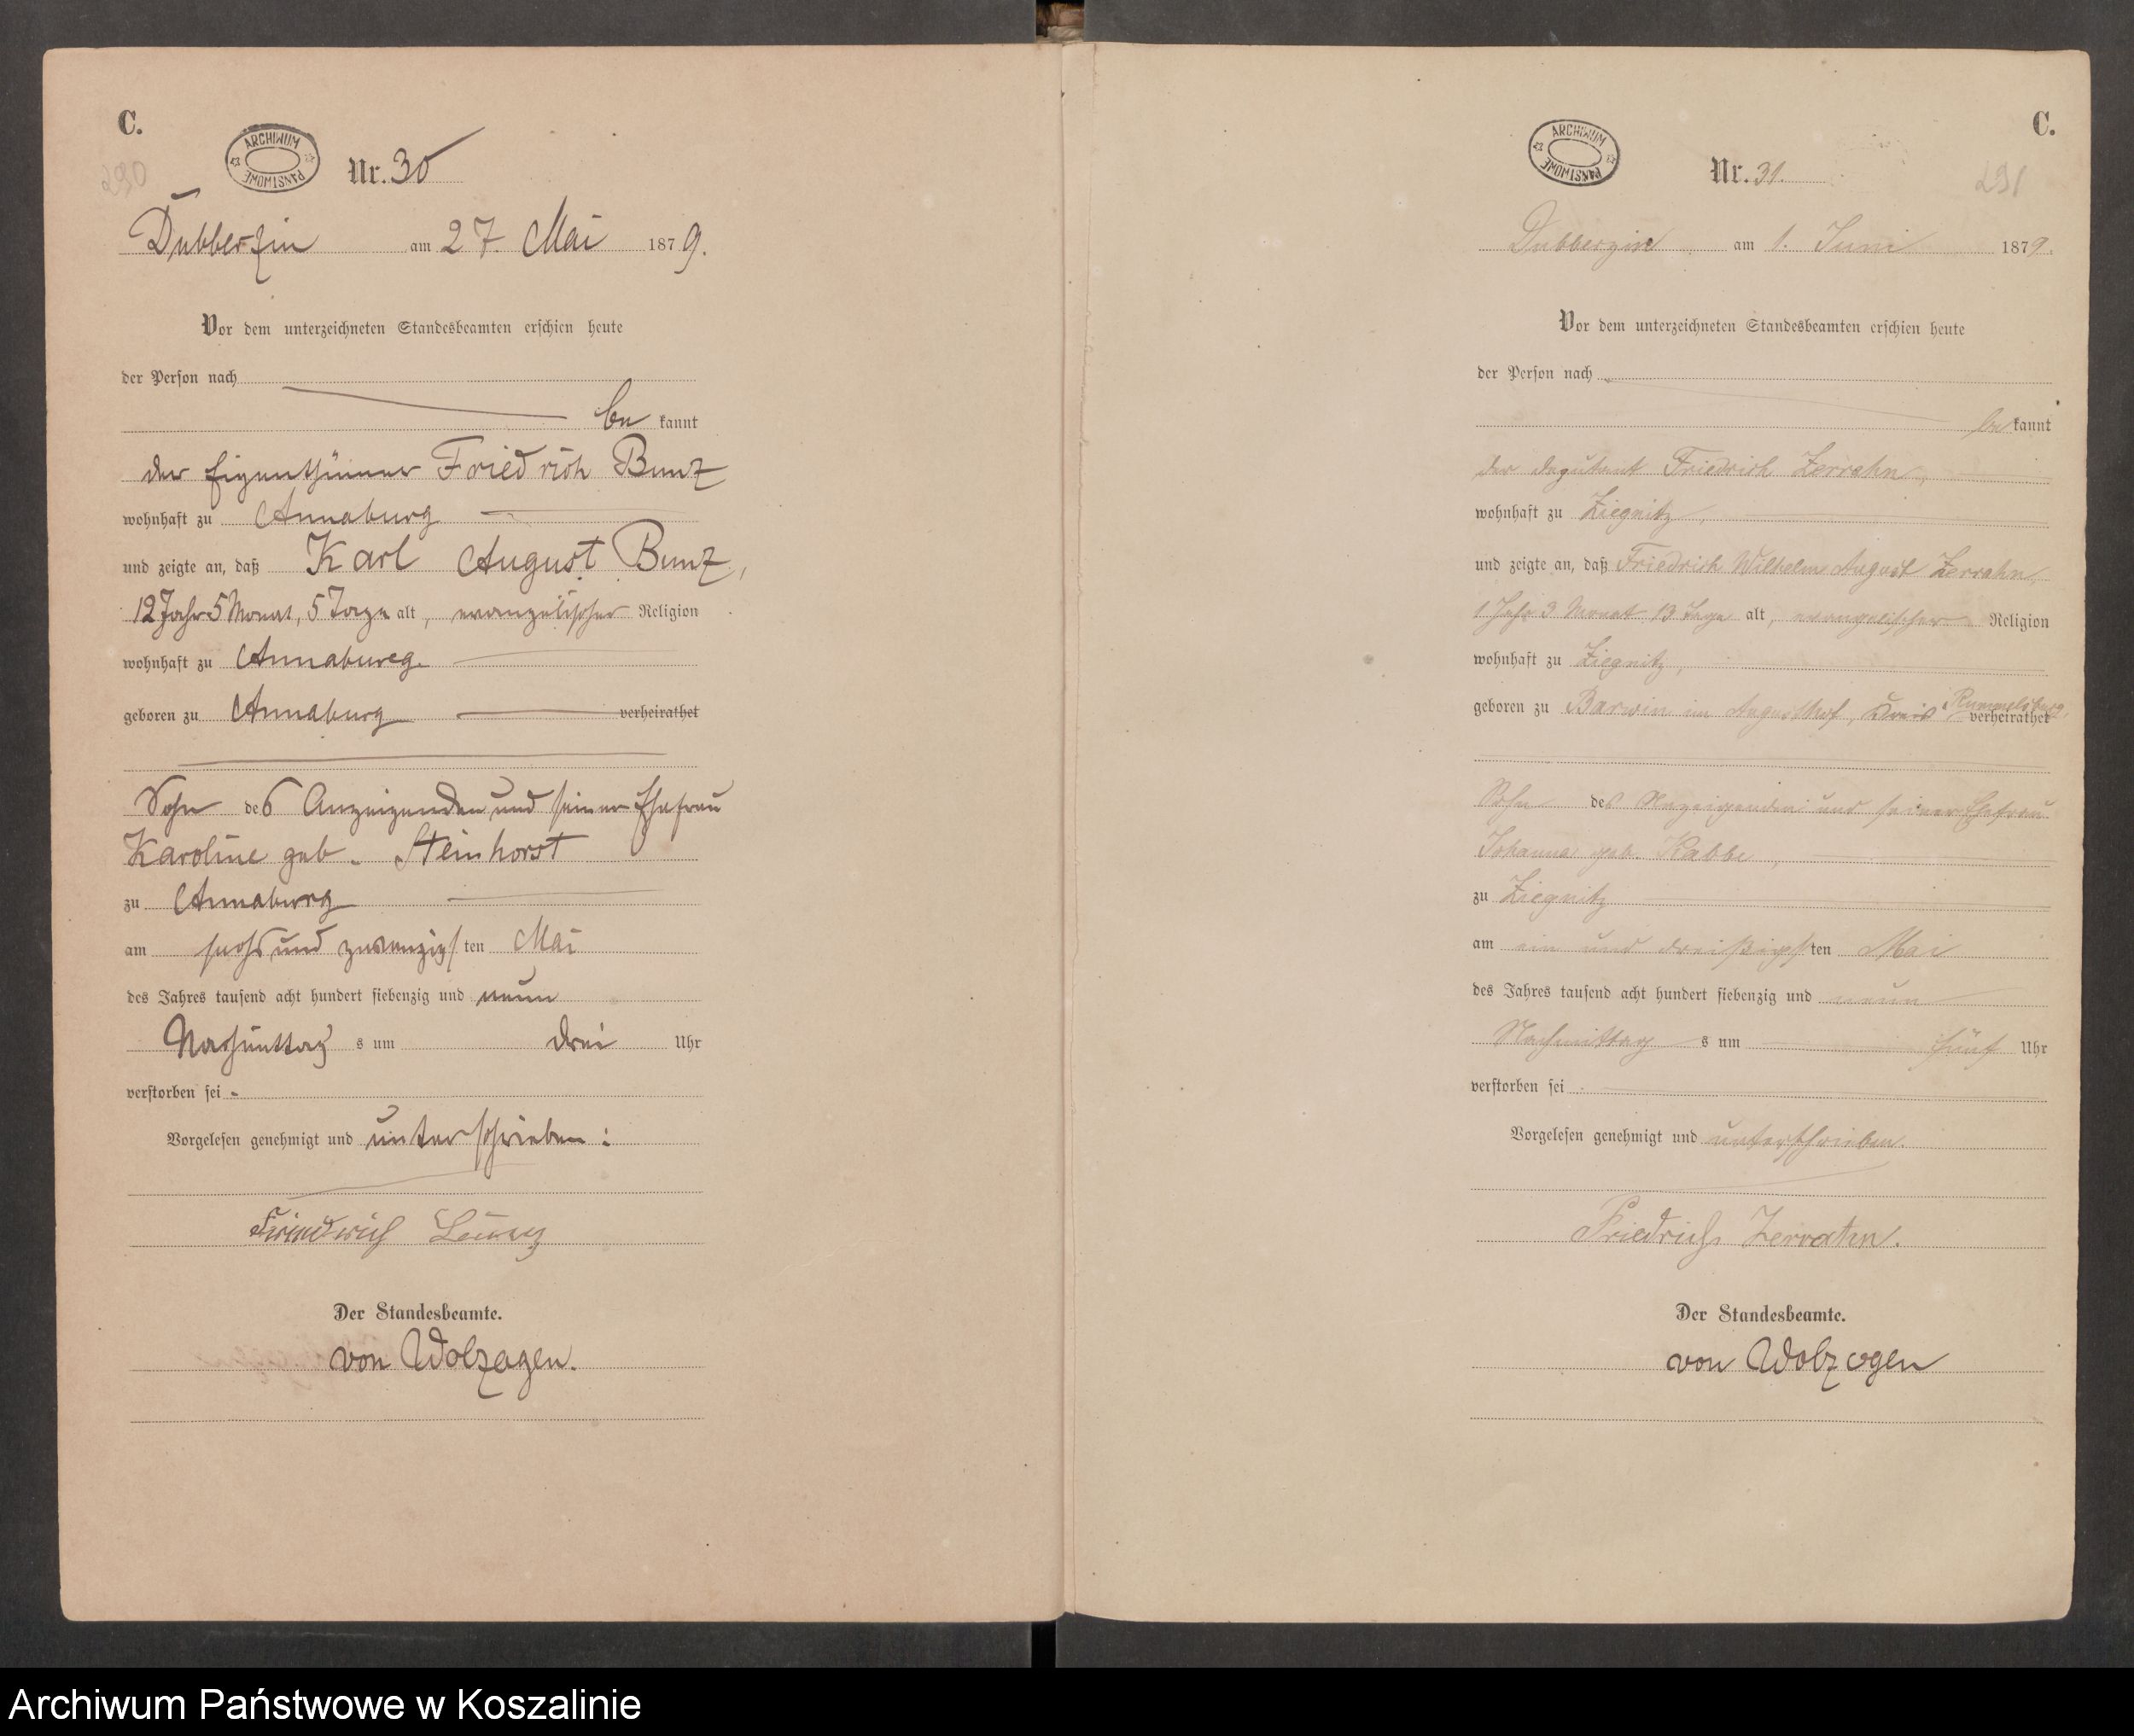 C.
ARCHIWUM PAŃSTWOWE
Nr. 30
290
Dubberzin am 27. Mai 1879.
Vor dem unterzeichneten Standesbeamten erschien heute
der Person nach
bekannt
der Eigenthümer Friedrich Bunz
wohnhaft zu Annaburg
und zeigte an, daß Karl August Bunz,
12 Jahr 5 Monat, 5 Tage alt, evangelischer Religion
wohnhaft zu Annaburg
geboren zu Annaburg verheirathet
Sohn des Anzeigenden und seiner Ehefrau
Karoline geb. Steinhorst
zu Annaburg
am sechs und zwanzigsten Mai
des Jahres tausend acht hundert siebenzig und neun
Nachmittags um drei Uhr
verstorben sei
Vorgelesen genehmigt und unterschrieben:
Friedrich
Der Standesbeamte.
von Wolzogen.
C.
ARCHIWUM PAŃSTWOWE
Nr. 31.
291
Dubberzin am 1. Juni 1879.
Vor dem unterzeichneten Standesbeamten erschien heute
der Person nach
bekannt
der Deputant Friedrich Zerrahn,
wohnhaft zu Ziegnitz,
und zeigte an, daß Friedrich Wilhelm August Zerrahn,
1 Jahr 3 Monat 13 Tage alt, evangelischer Religion
wohnhaft zu Ziegnitz,
geboren zu Barwin im Augusthof, Kreis Rummelsburg, verheirathet
Sohn des Anzeigenden und seiner Ehefrau
Johanna geb. Rabbe,
zu Ziegnitz
am ein und dreißigsten Mai
des Jahres tausend acht hundert siebenzig und neun
Nachmittags um fünf Uhr
verstorben sei
Vorgelesen genehmigt und unterschrieben.
Friedrich Zerrahn.
Der Standesbeamte.
von Wolzogen
Archiwum Państwowe w Koszalinie